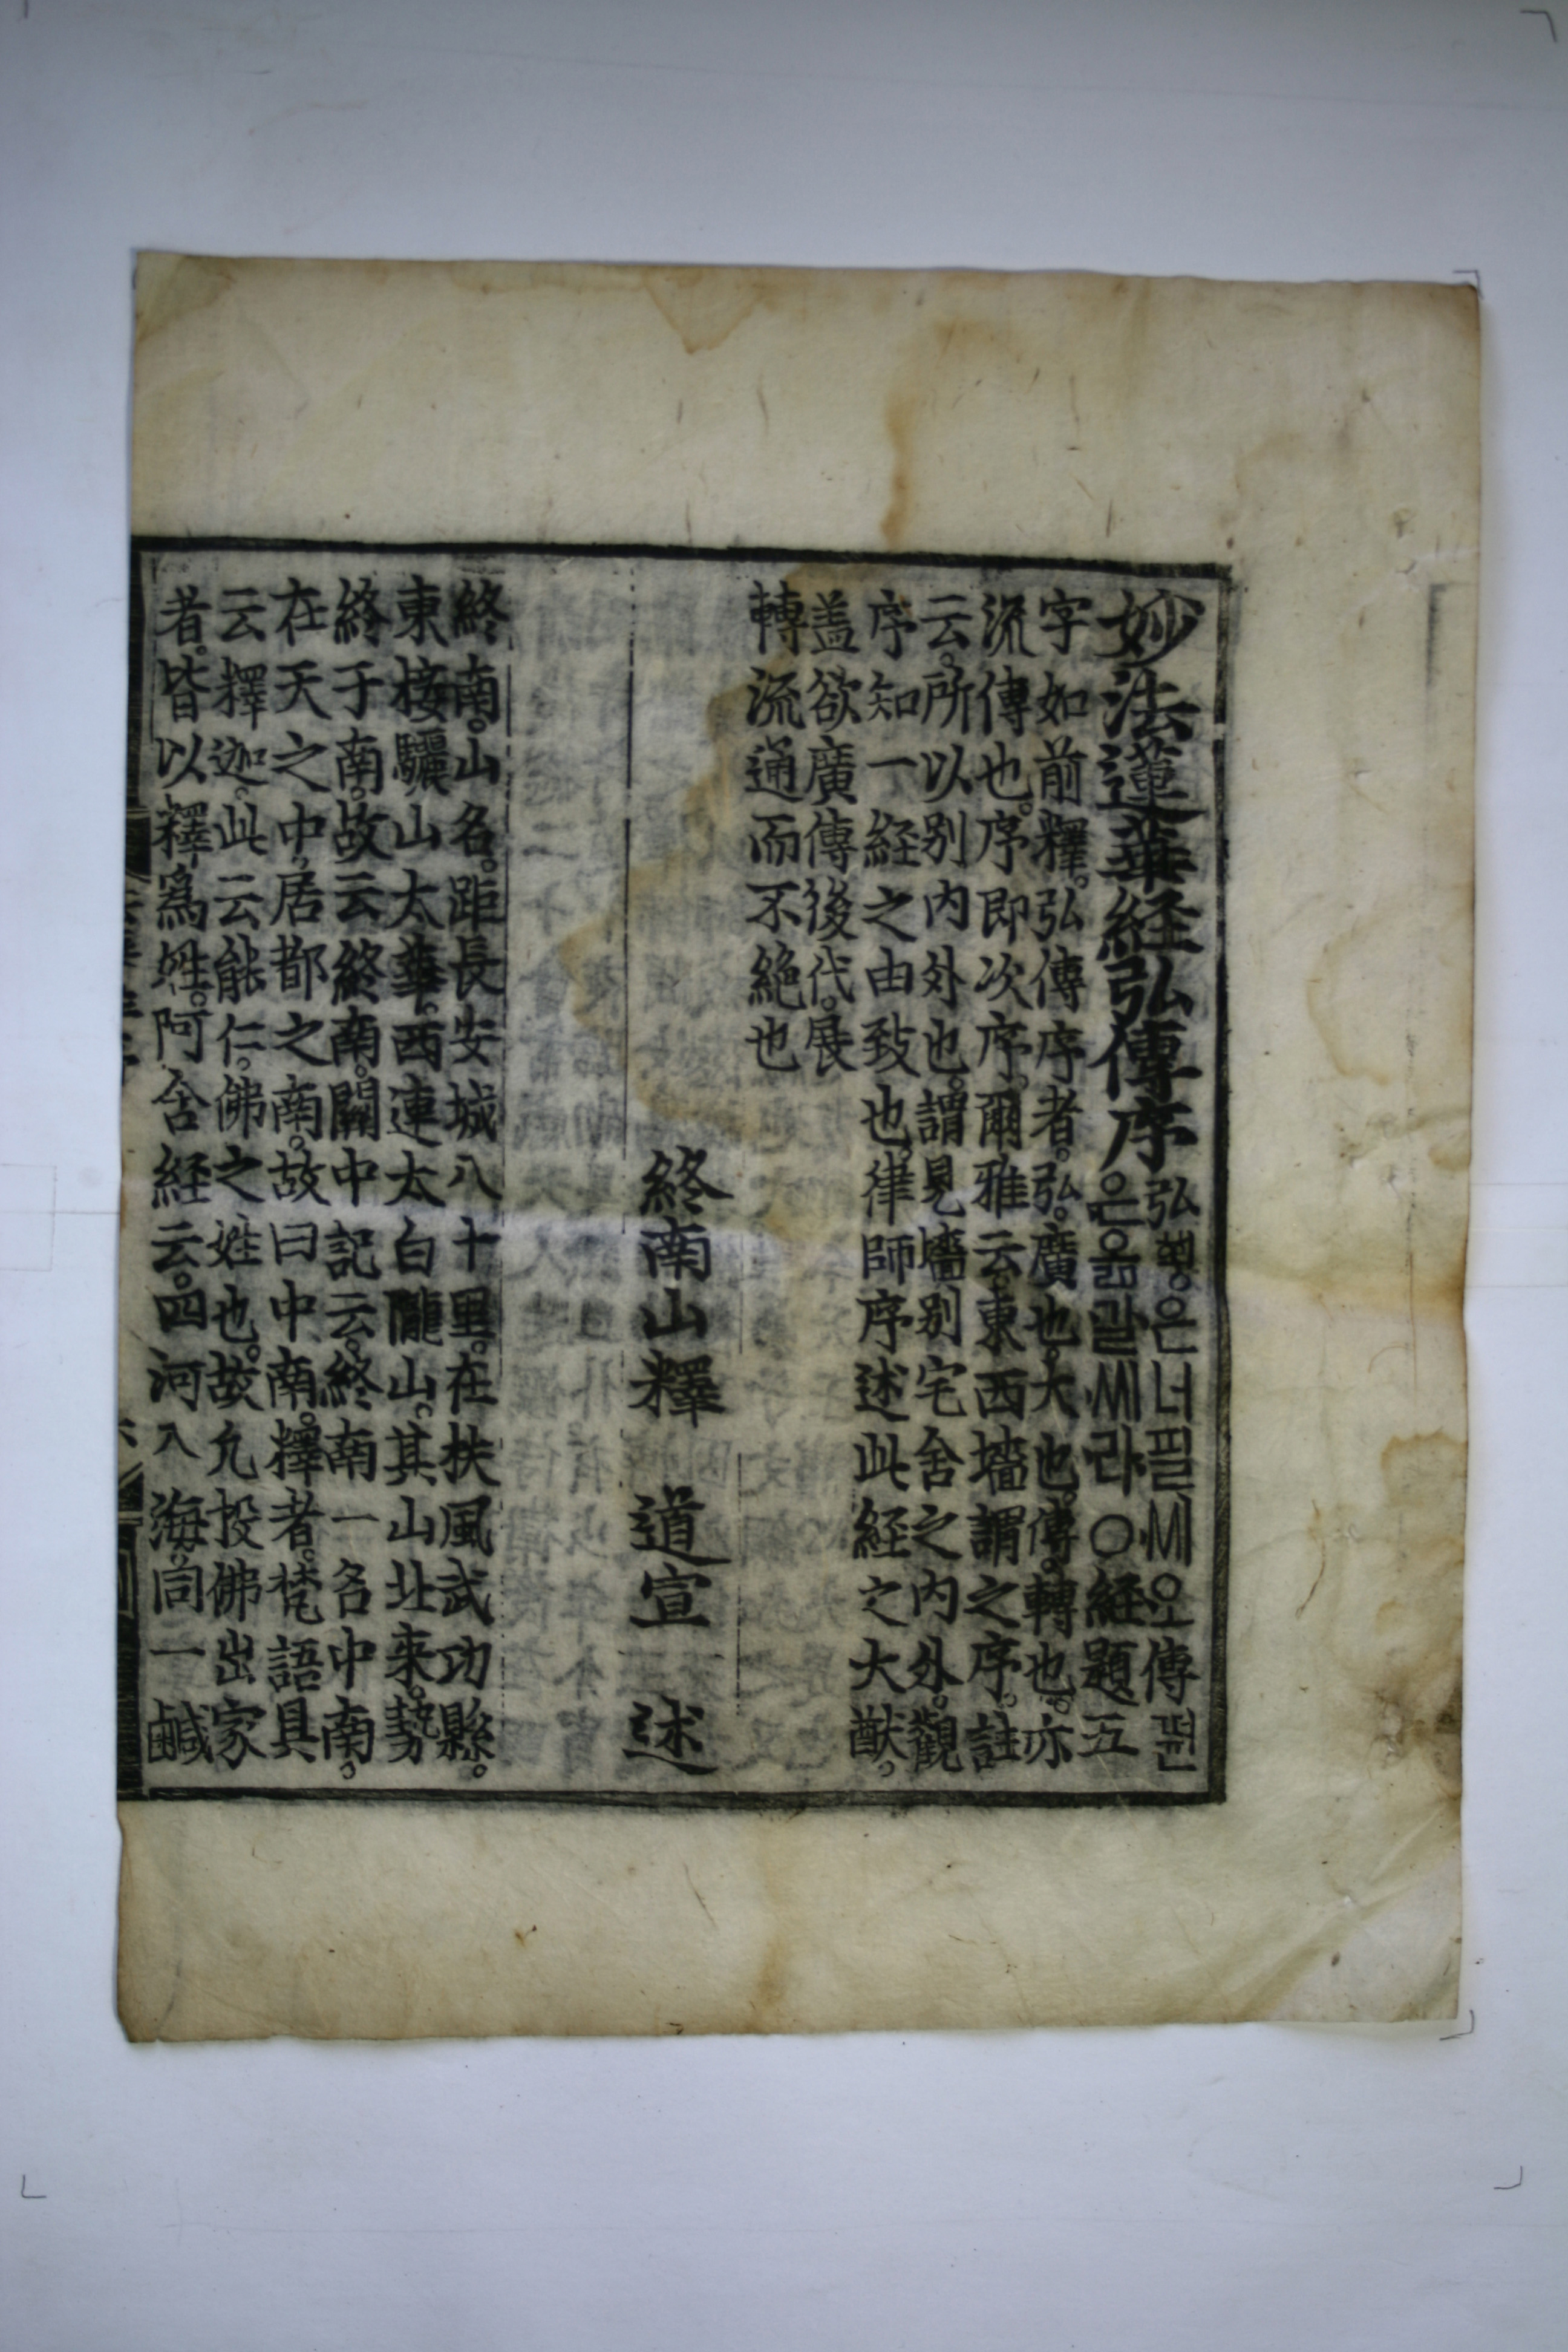 妙法蓮華経弘傳序 弘ᅘᅯᇰ은너필씨오傳뎐
은옮길씨라○経題五
字如前釋。弘傳序者。弘。廣也。大也。傳。轉也。亦
流傳也。序即次序。爾雅云。東西墻謂之序。註
云。所以別内外也。謂見墻別宅舍之内外。觀
序知一経之由致也。律師序述此経之大猷。
盖欲廣傳後代。展
轉流通而不絶也
終南山釋 道宣 述
終南。山名。距長安城八十里。在扶風武功縣。
東接驪山太華。西連太白隴山。其山北来。勢
終于南。故云終南。關中記云。終南一名中南。
在天之中。居都之南。故曰中南。釋者。梵語具
云釋迦。此云能仁。佛之姓也。故凡投佛出家
者。皆以釋爲姓。阿含経云。四河入海。同一鹹